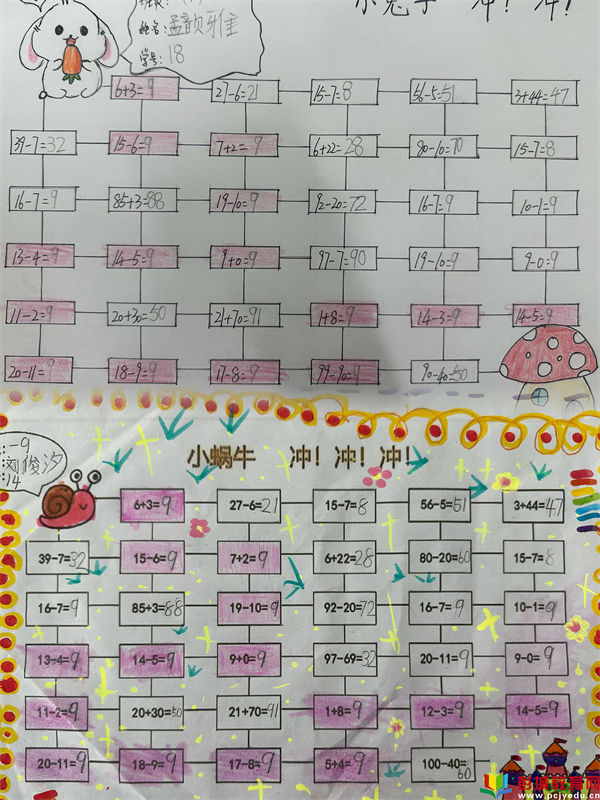 姓名: 孟韵雅
学号: 18
小兔子 冲! 冲!
6+3=9 27-6=21 15-7=8 56-5=51 3+44=47
39-7=32 15-6=9 7+2=9 6+22=28 80-10=70 15-7=8
16-7=9 85+3=88 19-10=9 92-20=72 16-7=9 10-1=9
13-4=9 14-5=9 9+0=9 97-7=90 19-10=9 9-0=9
11-2=9 20+30=50 21+70=91 1+8=9 14-3=9 14-5=9
20-11=9 18-9=9 17-8=9 99-90=9 90-40=50
一9
刘俊汐
14
小蜗牛 冲! 冲! 冲!
6+3=9 27-6=21 15-7=8 56-5=51 3+44=47
39-7=32 15-6=9 7+2=9 6+22=28 80-20=60 15-7=8
16-7=9 85+3=88 19-10=9 92-20=72 16-7=9 10-1=9
13-4=9 14-5=9 9+0=9 97-69=32 20-11=9 9-0=9
11-2=9 20+30=50 21+70=91 1+8=9 12-3=9 14-5=9
20-11=9 18-9=9 17-8=9 5+4=9 100-40=60
彭城教育网
www.pcjyedu.cn